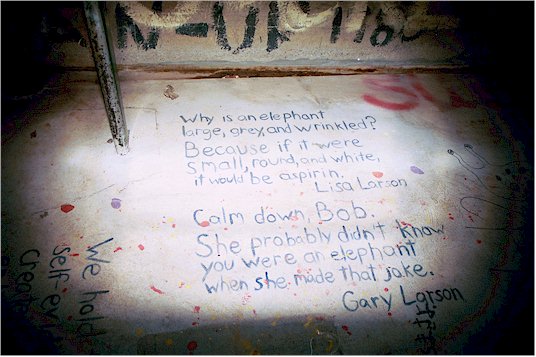 Why is an elephant
large, grey, and wrinkled?
Because if it were
small, round, and white,
it would be aspirin.
Lisa Larson
Calm down, Bob.
She probably didn't know
you were an elephant
when she made that joke.
Gary Larson
We hold
self-evi